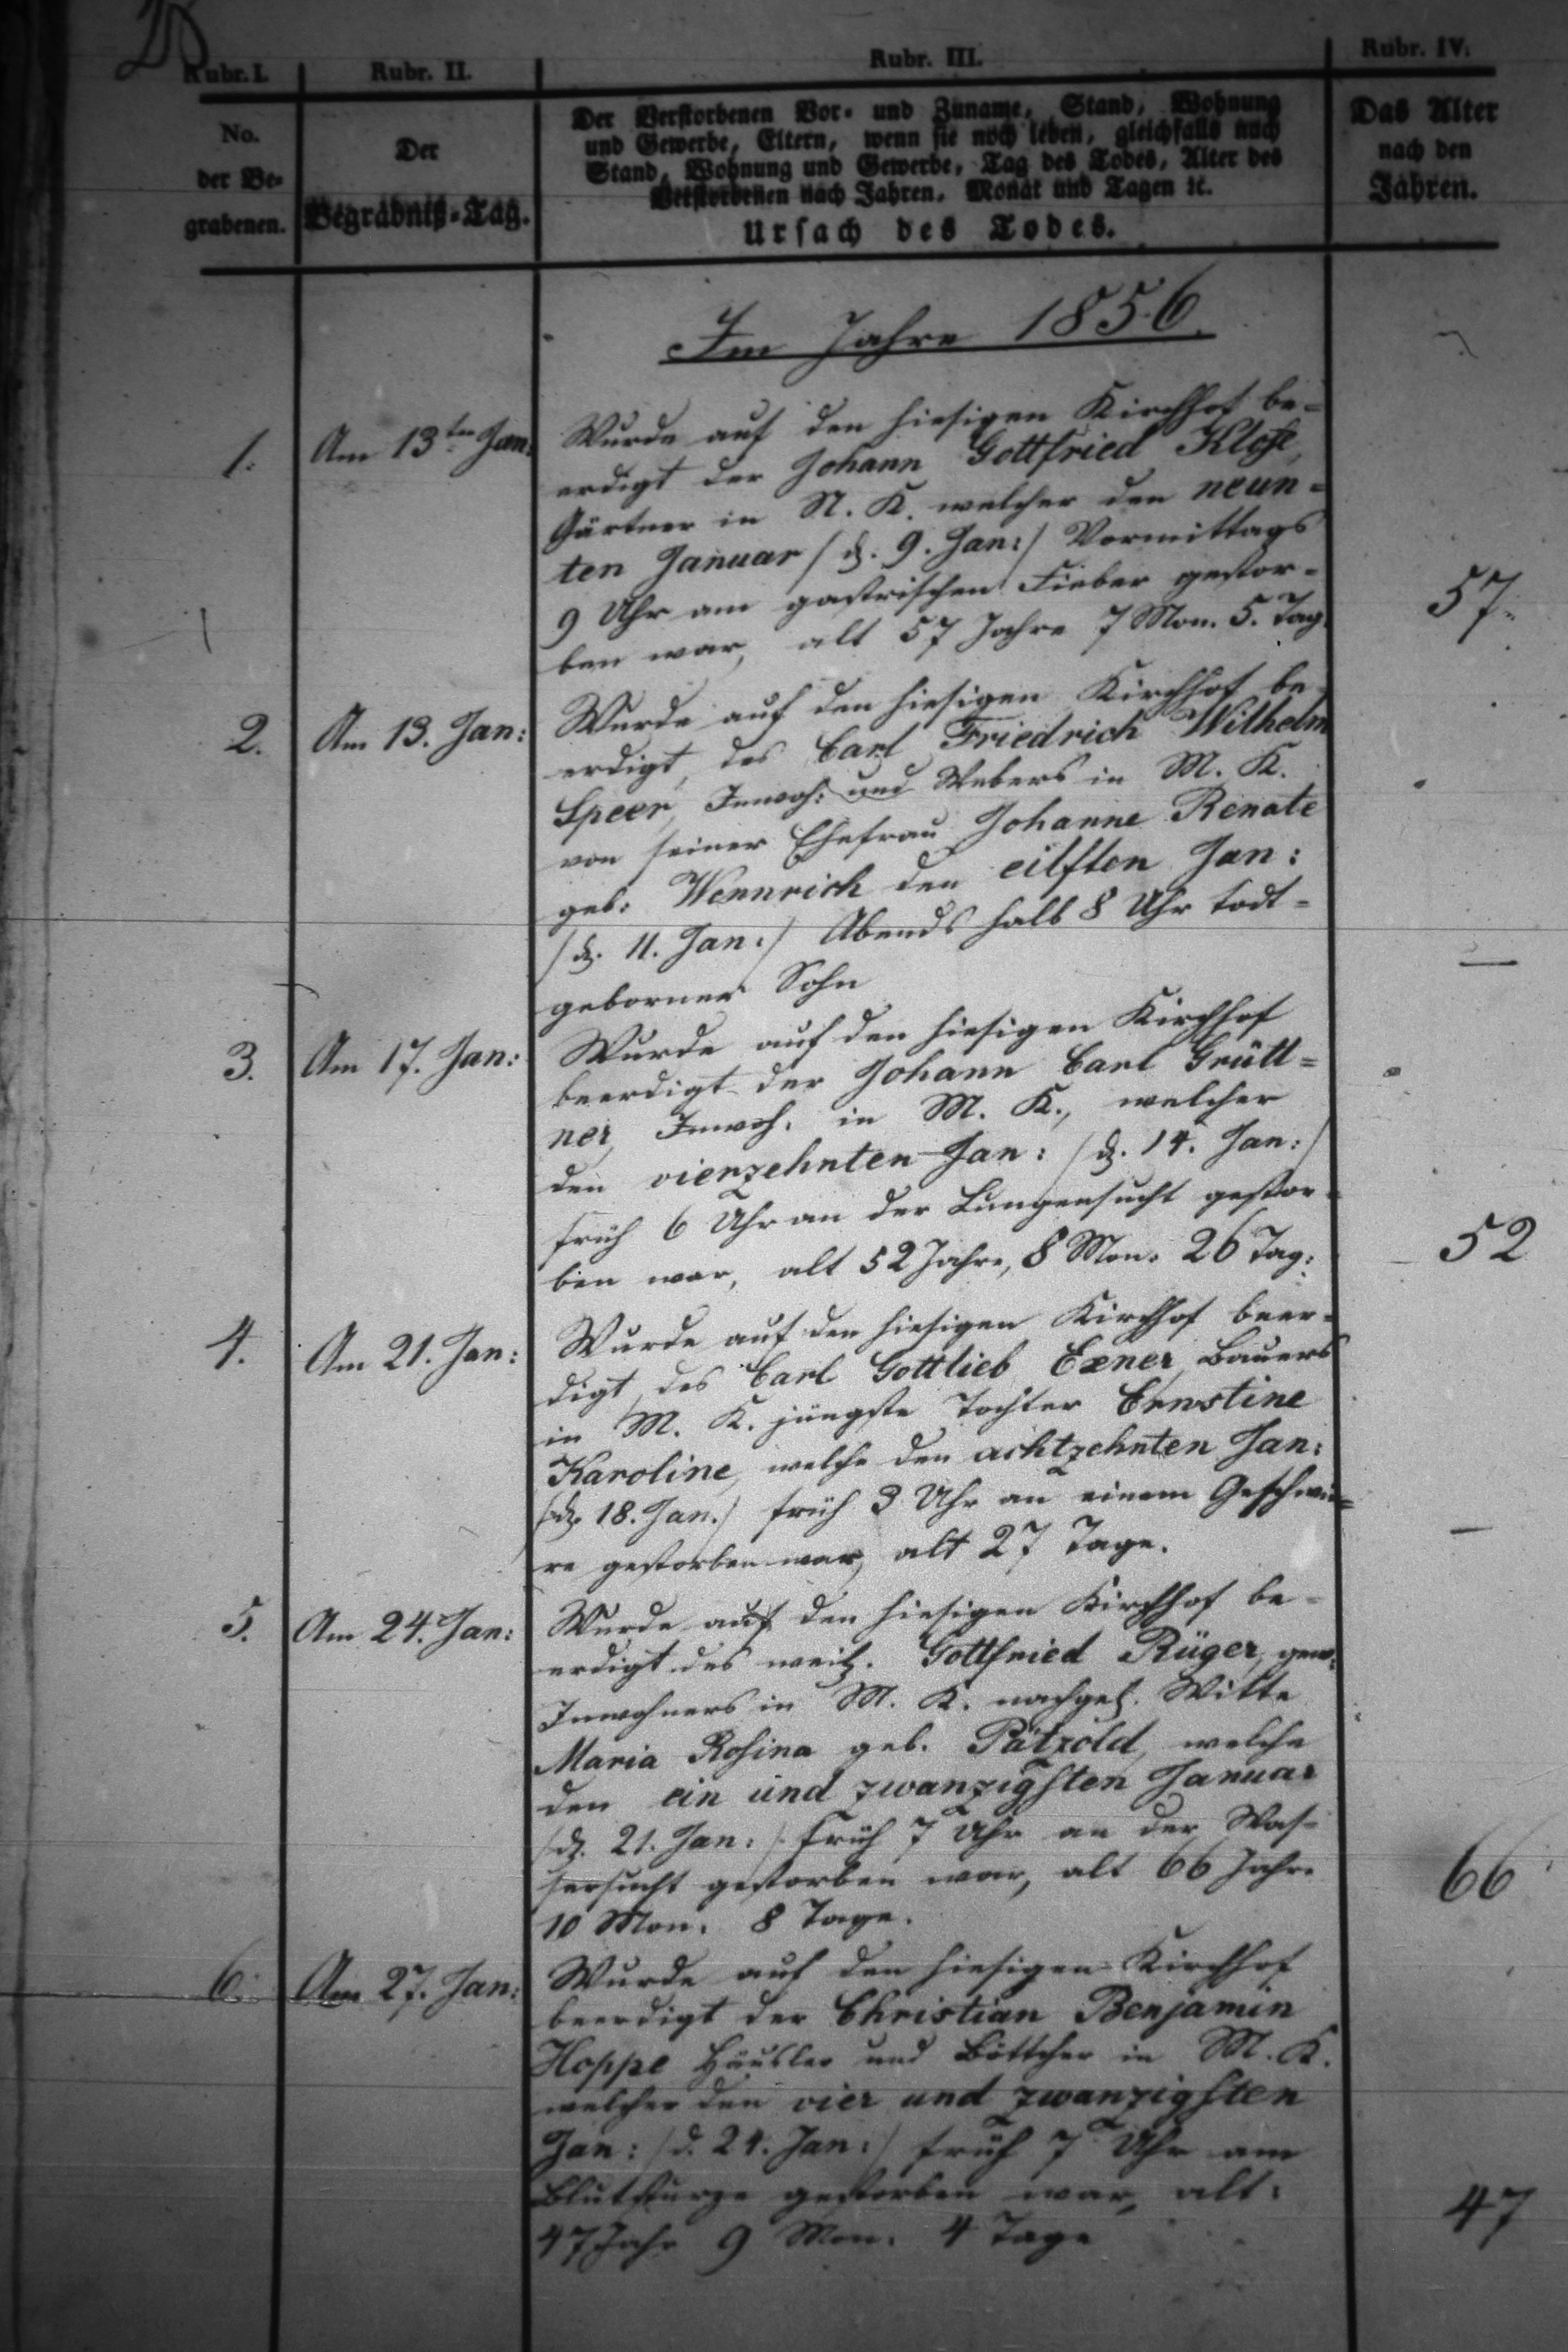 Rubr. I.
Rubr. II.
Rubr. III.
Rubr. IV.
No.
der Be-
grabenen.
Der
Begräbniß-Tag.
Der Verstorbenen Vor- und Zuname, Stand, Wohnung
und Gewerbe, Eltern, wenn sie noch leben, gleichfalls nach
Stand, Wohnung und Gewerbe, Tag des Todes, Alter des
Verstorbenen nach Jahren, Monat und Tagen ꝛc.
Ursach des Todes.
Das Alter
nach den
Jahren.
Im Jahre 1856.
1. Am 13ten Jan: Wurde auf den hiesigen Kirchhof be=
erdigt der Johann Gottfried Klose,
Gärtner in N. K. welcher den neun=
ten Januar /d. 9. Jan:/ Vormittags
9 Uhr am gastrischen Fieber gestor=
ben war, alt 57 Jahre 7 Mon. 5. Tag.
57.
2. Am 13. Jan: Wurde auf den hiesigen Kirchhof be=
erdigt, des Carl Friedrich Wilhelm
Speer, Inwoh: und Webers in M. K.
von seiner Ehefrau Johanne Renate
geb: Wennrich den eilften Jan:
/d. 11. Jan:/ Abends halb 8 Uhr todt=
geborner Sohn
—
3. Am 17. Jan: Wurde auf den hiesigen Kirchhof
beerdigt der Johann Carl Grütt=
ner, Inwoh. in M. K., welcher
den vierzehnten Jan: /d. 14. Jan:/
früh 6 Uhr an der Lungensucht gestor=
ben war, alt 52 Jahre, 8 Mon. 26 Tag:
52
4. Am 21. Jan: Wurde auf den hiesigen Kirchhof beer=
digt, des Carl Gottlieb Exner, Bauers
in M. K. jüngste Tochter Ernstine
Karoline, welche den achtzehnten Jan:
/d. 18. Jan./ früh 3 Uhr an einem Geschwü=
re gestorben war, alt 27 Tage.
—
5. Am 24. Jan: Wurde auf den hiesigen Kirchhof be=
erdigt des weil. Gottfried Rüger, gew.
Inwohners in M. K. nachgel. Witte
Maria Rosina geb. Pätzold, welche
den ein und zwanzigsten Januar
/d. 21. Jan:/ Früh 7 Uhr an der Was=
sersucht gestorben war, alt 66 Jahre
10 Mon. 8 Tage.
66
6. Am 27. Jan: Wurde auf den hiesigen Kirchhof
beerdigt der Christian Benjamin
Hoppe Häusler und Böttcher in M. K.
welcher den vier und zwanzigsten
Jan: /d. 24. Jan:/ früh 7 Uhr am
Blutsturze gestorben war, alt:
47 Jahr 9 Mon. 4 Tage
47